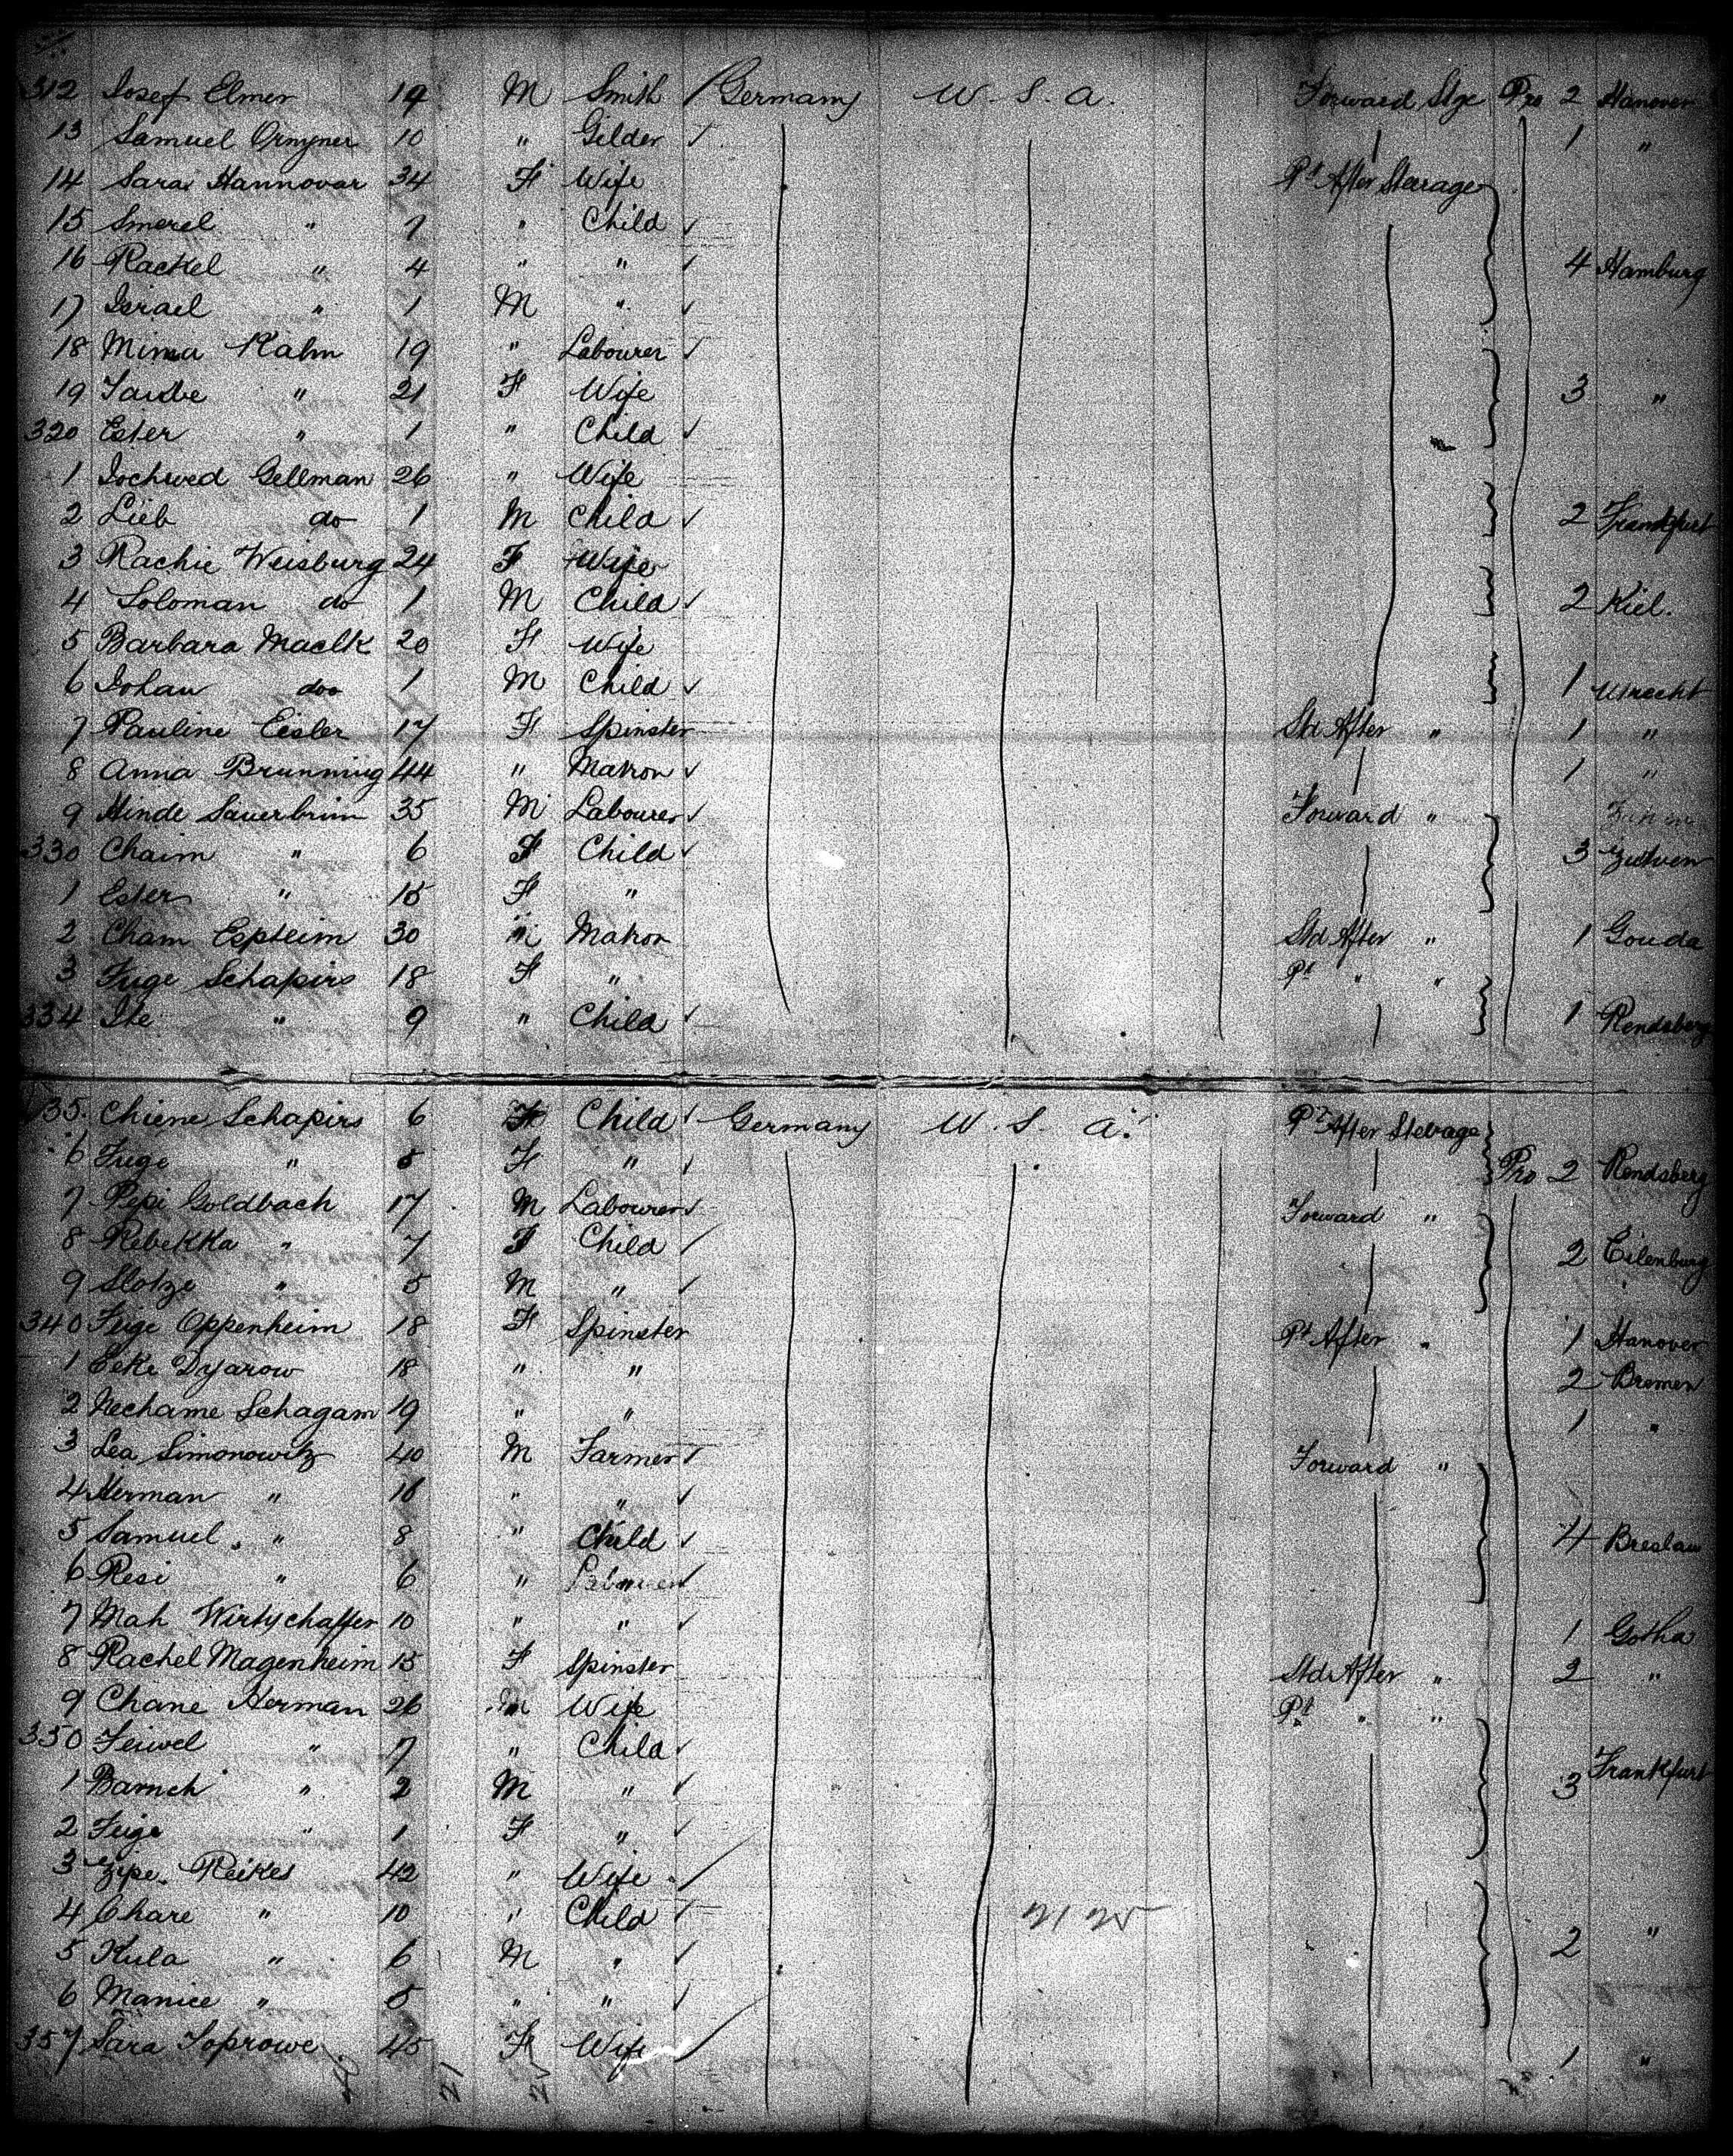 312 Josef Elmer 19 M Smith Germany U. S. A. Forward Stge Pro 2 Hanover
13 Samuel 10 " Gilder 1 "
14 Sara Hannovar 34 F Wife Pt After Stearage
15 Smerel " 7 " Child
16 Rackel " 4 " " 4 Hamburg
17 Israel " 1 M "
18 Minna Kalm 19 " Labourer
19 Taube " 21 F Wife 3 "
320 Ester " 1 " Child
1 Jochwed Gellman 26 " Wife
2 Lieb do 1 M Child 2 Frankfurt
3 Rachie Weisburg 24 F Wife
4 Soloman do 1 M Child 2 Kiel.
5 Barbara Maclk 20 F Wife
6 Johan do 1 M Child 1 Utrecht
7 Pauline Eisler 17 F Spinster Std After " 1 "
8 Anna Brunning 44 " Matron 1 "
9 Hinde Sauerbrim 35 M Labourer Forward "
330 Chaim " 6 F Child 3 Zutven
1 Ester " 15 F "
2 Cham Epsteim 30 Matron Std After " 1 Gouda
3 Fuge Schapirs 18 F " Pt " "
334 Ite " 9 " Child 1 Rendsberg
335. Chiene Schapirs 6 F Child Germany U. S. A. Pt After Sterage
6 Fuge " 5 F " Pro 2 Rendsberg
7 Pepi Goldbach 17 M Labourer Forward "
8 Rebekka " 7 F Child 2 Eilenburg
9 Slotze " 5 M "
340 Feige Oppenheim 18 F Spinster Pt After " 1 Hanover
1 Eske Dyarow 18 " " 2 Bremen
2 Nechame Schagam 19 " " 1 "
3 Lea Simonowitz 40 M Farmer Forward "
4 Herman " 16 " "
5 Samuel " 8 " Child 4 Breslau
6 Resi " 6 " "
7 Mah Wirtychaffer 10 " " 1 Gotha
8 Rachel Magenheim 15 F Spinster Std After " 2 "
9 Chane Herman 26 Wife Pt " "
350 Feiwel " 7 " Child
1 Barnch " 2 M " 3 Frankfurt
2 Feige " 1 F "
3 Zipe Reikes 42 " Wife
4 Chare " 10 " Child
5 Kula " 6 M " 2 "
6 Manice " 5 " "
357 Sara Soprowe 45 F Wife 1 "